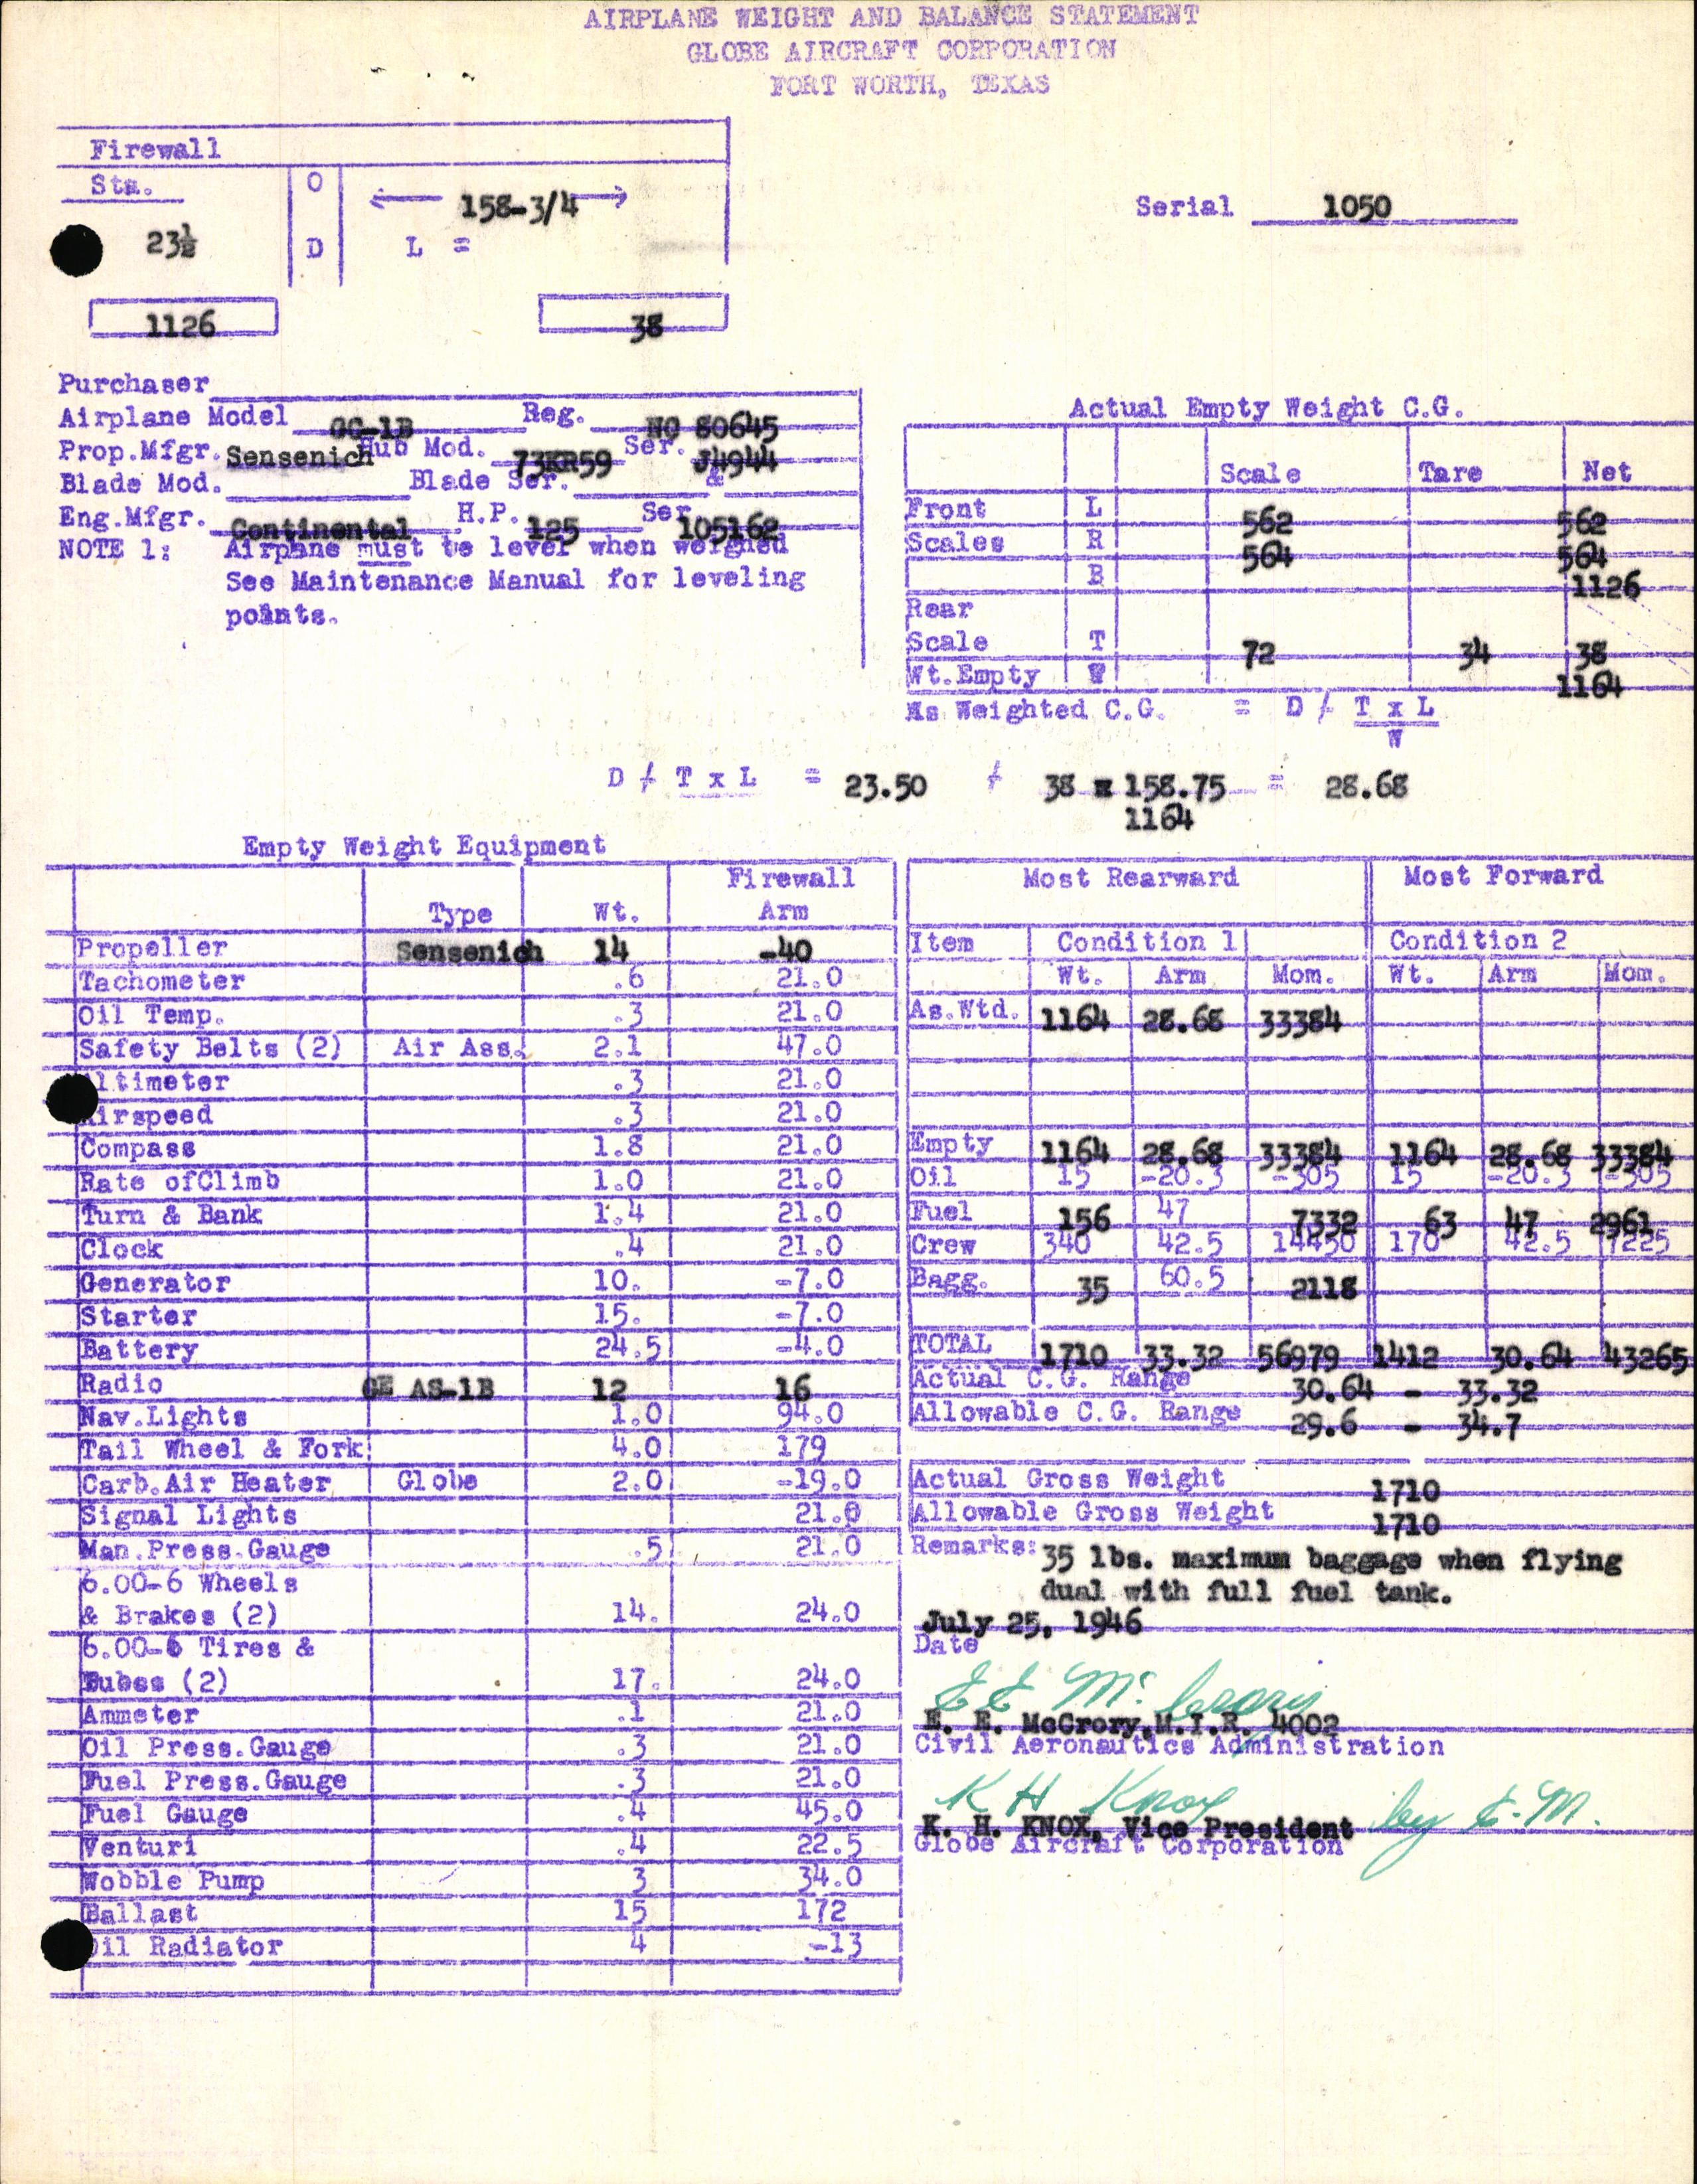 AIRPLANE WEIGHT AND BALANCE STATEMENT
GLOBE AIRCRAFT CORPORATION
FORT WORTH, TEXAS
Firewall
Sta. O 158-3/4
23½ D L =
Serial 1050
1126 38
Purchaser
Airplane Model GC-1B Reg. NC 80645
Prop.Mfgr. Sensenich Hub Mod. 73KR59 Ser. J4944
Blade Mod. Blade Ser. &
Eng.Mfgr. Continental H.P. 125 Ser 105162
NOTE 1: Airplane must be level when weighed
See Maintenance Manual for leveling
points.
Actual Empty Weight C.G.
Scale Tare Net
Front L 562 562
Scales R 564 564
B 1126
Rear
Scale T 72 34 38
Wt.Empty W 1164
As Weighted C.G. = D / T x L
W
D / T x L = 23.50 / 38 x 158.75 = 28.68
1164
Empty Weight Equipment
Firewall
Type Wt. Arm
Propeller Sensenich 14 -40
Tachometer .6 21.0
Oil Temp. .3 21.0
Safety Belts (2) Air Ass. 2.1 47.0
Altimeter .3 21.0
Airspeed .3 21.0
Compass 1.8 21.0
Rate ofClimb 1.0 21.0
Turn & Bank 1.4 21.0
Clock .4 21.0
Generator 10. -7.0
Starter 15. -7.0
Battery 24.5 -4.0
Radio GE AS-1B 12 16
Nav.Lights 1.0 94.0
Tail Wheel & Fork 4.0 179
Carb.Air Heater Globe 2.0 -19.0
Signal Lights 21.0
Man.Press.Gauge .5 21.0
6.00-6 Wheels
& Brakes (2) 14. 24.0
6.00-6 Tires &
Tubes (2) 17. 24.0
Ammeter .1 21.0
Oil Press.Gauge .3 21.0
Fuel Press.Gauge .3 21.0
Fuel Gauge .4 45.0
Venturi .4 22.5
Wobble Pump 3 34.0
Ballast 15 172
Oil Radiator 4 -13
Most Rearward Most Forward
Item Condition 1 Condition 2
Wt. Arm Mom. Wt. Arm Mom.
As.Wtd. 1164 28.68 33384
Empty 1164 28.68 33384 1164 28.68 33384
Oil 15 -20.3 -305 15 -20.3 -305
Fuel 156 47 7332 63 47 2961
Crew 340 42.5 14450 170 42.5 7225
Bagg. 35 60.5 2118
TOTAL 1710 33.32 56979 1412 30.64 43265
Actual C.G. Range 30.64 - 33.32
Allowable C.G. Range 29.6 - 34.7
Actual Gross Weight 1710
Allowable Gross Weight 1710
Remarks: 35 lbs. maximum baggage when flying
dual with full fuel tank.
July 25, 1946
Date
E E McCrory
E. E. McCrory,M.I.R. 4002
Civil Aeronautics Administration
K H Knox by E.M.
K. H. KNOX, Vice President
Globe Aircraft Corporation